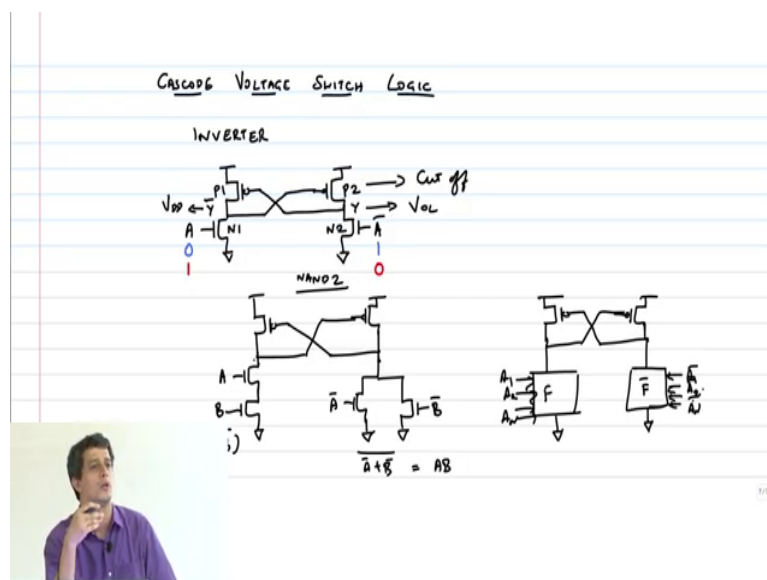 CASCODE VOLTAGE SWITCH LOGIC
INVERTER
P1 P2 → Cut off
VDD ← Y̅ Y → VOL
A N1 N2 A̅
0 1
1 0
NAND2
A
B A̅ B̅
A̅+B̅ = AB
A1 F F̅
A2
AN A̅N